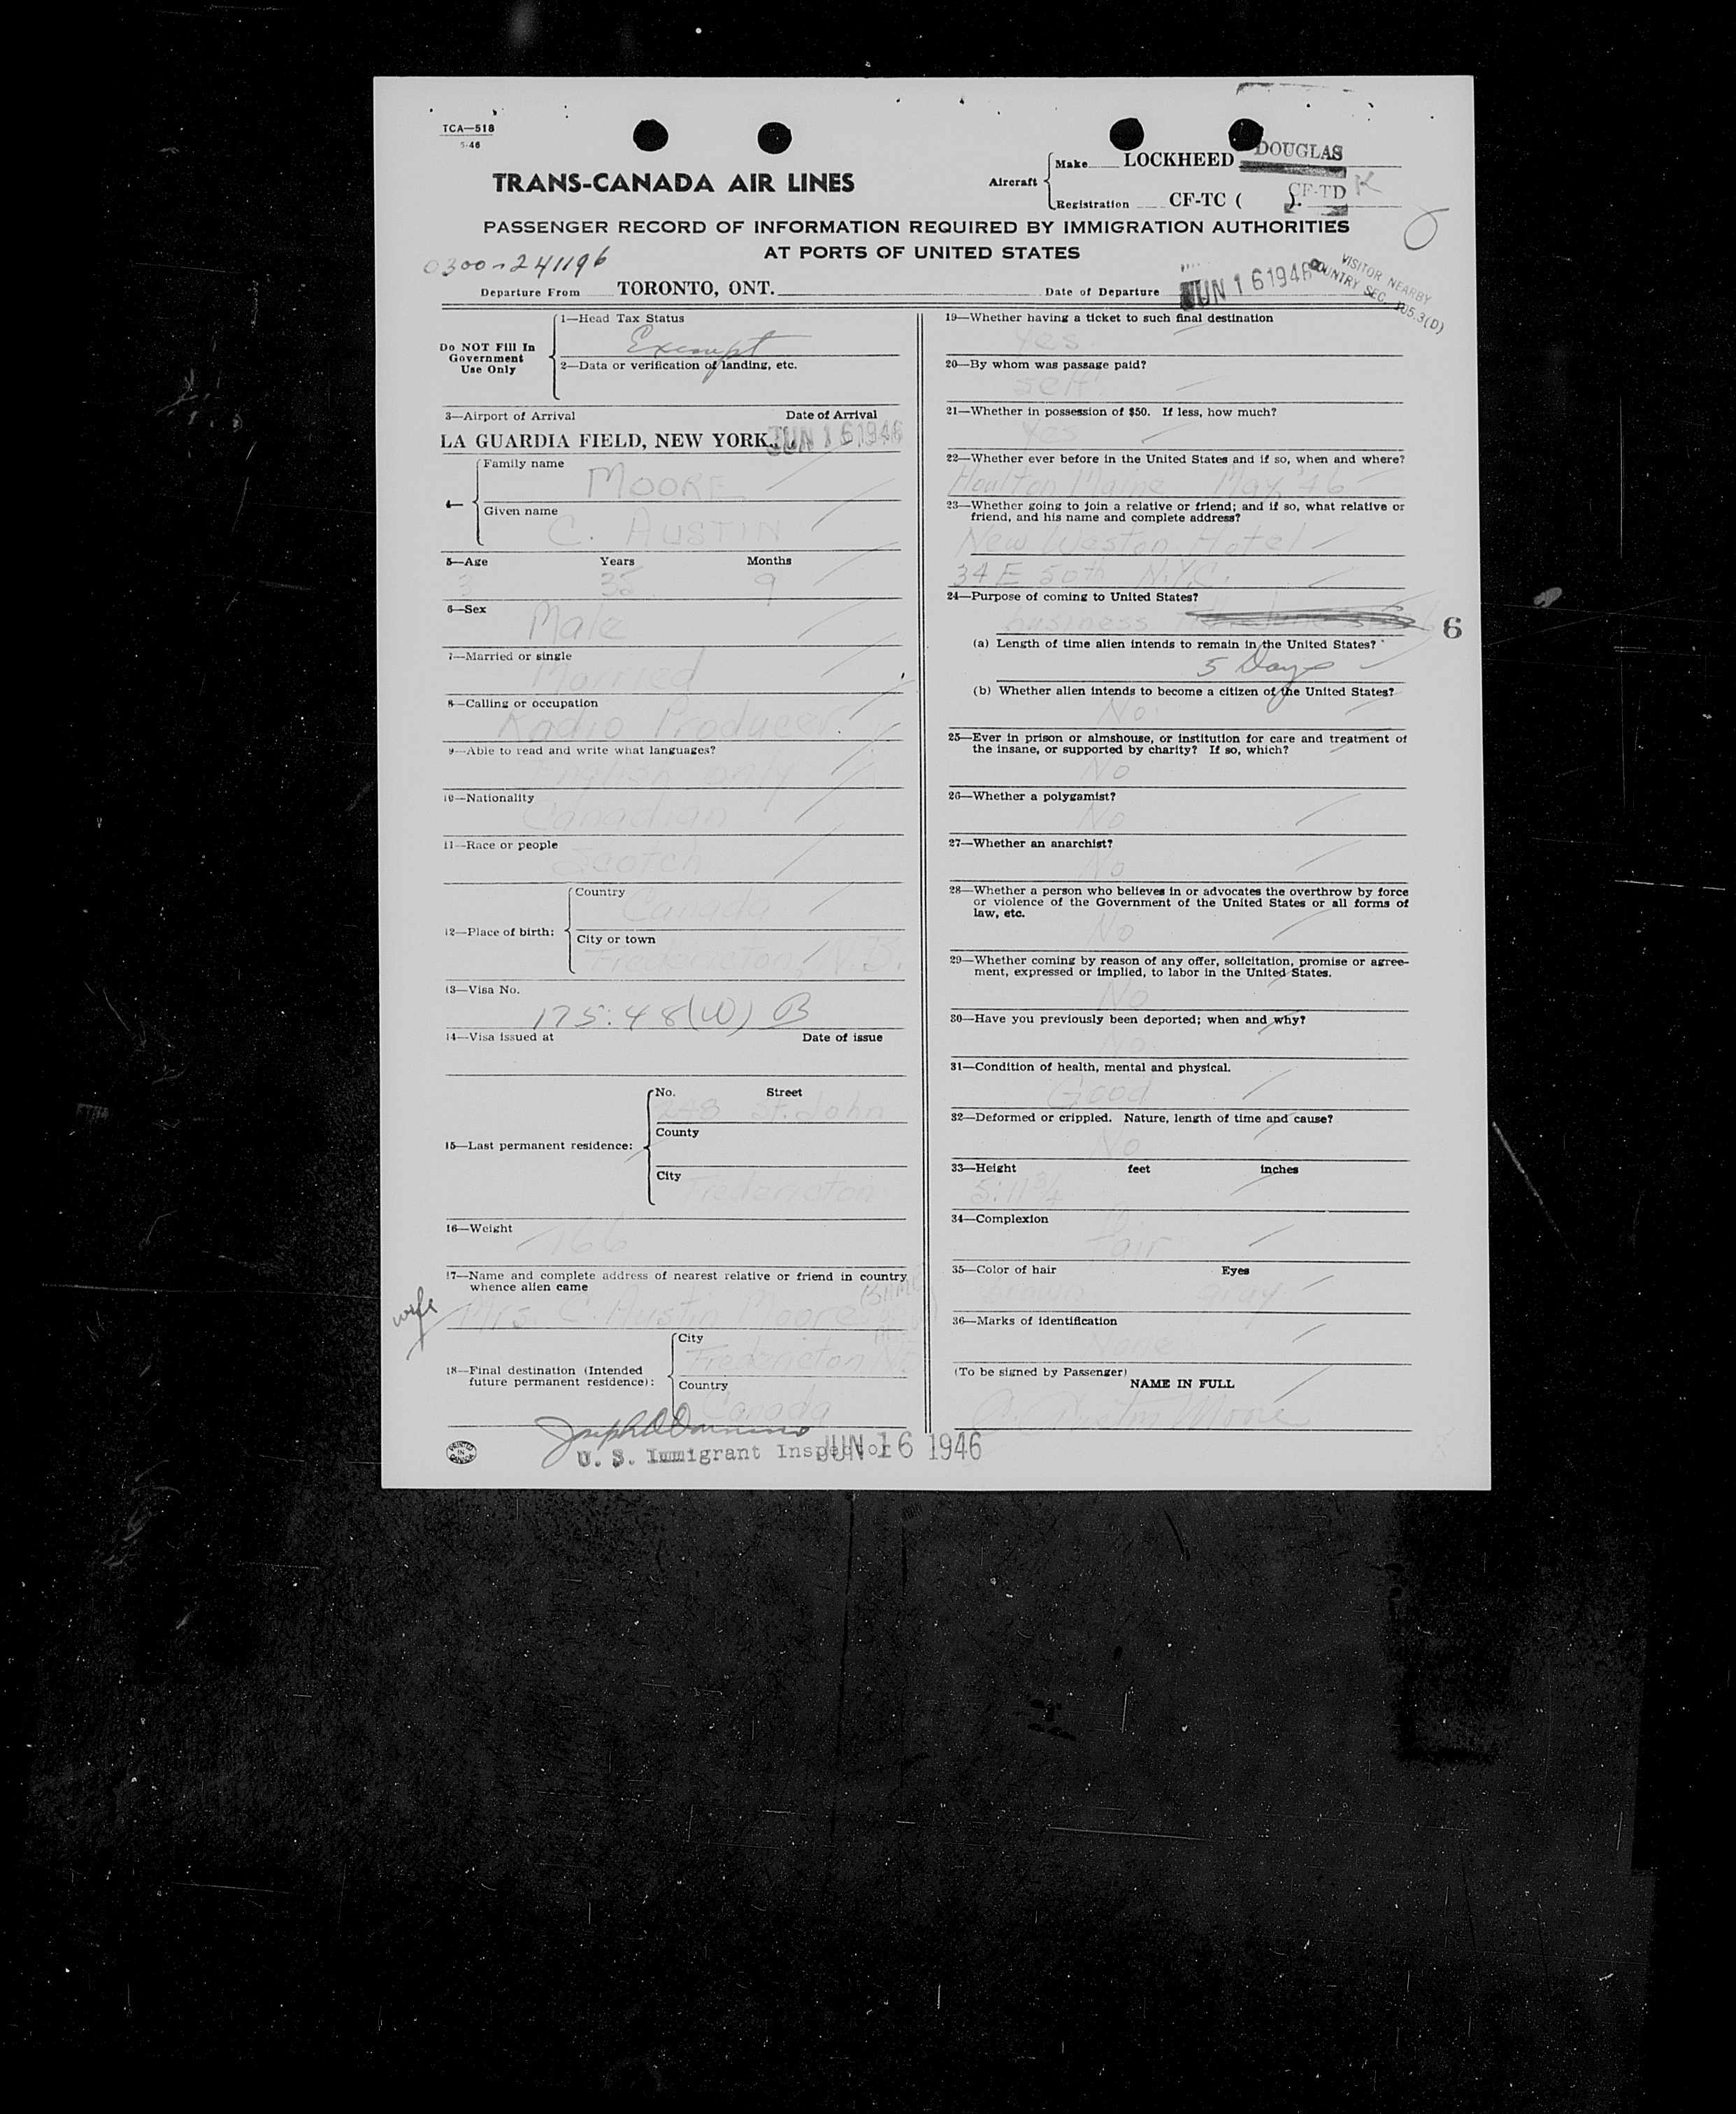 TCA—518
5-46
TRANS-CANADA AIR LINES
Aircraft
Make LOCKHEED DOUGLAS
Registration CF-TC ( ). CF-TD K
PASSENGER RECORD OF INFORMATION REQUIRED BY IMMIGRATION AUTHORITIES
AT PORTS OF UNITED STATES
0300-241196
VISITOR NEARBY
COUNTRY SEC. 105.3(D)
Departure From TORONTO, ONT.
Date of Departure JUN 16 1946
Do NOT Fill In
Government
Use Only
1—Head Tax Status
Exempt
2—Data or verification of landing, etc.
3—Airport of Arrival Date of Arrival
LA GUARDIA FIELD, NEW YORK. JUN 16 1946
4—
Family name
MOORE
Given name
C. AUSTIN
5—Age Years Months
35 9
6—Sex
Male
7—Married or single
Married
8—Calling or occupation
Radio Producer
9—Able to read and write what languages?
English only
10—Nationality
Canadian
11—Race or people
Scotch
12—Place of birth:
Country
Canada
City or town
Fredericton N.B.
13—Visa No.
175:48(W) B
14—Visa issued at Date of issue
15—Last permanent residence:
No. Street
St. John
County
City
Fredericton
16—Weight
166
17—Name and complete address of nearest relative or friend in country
whence alien came
wife
Mrs. C. Austin Moore
18—Final destination (Intended
future permanent residence):
City
Fredericton
Country
Canada
U. S. Immigrant Inspector JUN 16 1946
PRINTED
IN
CANADA
19—Whether having a ticket to such final destination
Yes
20—By whom was passage paid?
Self
21—Whether in possession of $50. If less, how much?
Yes
22—Whether ever before in the United States and if so, when and where?
Houlton Maine May '46
23—Whether going to join a relative or friend; and if so, what relative or
friend, and his name and complete address?
New Weston Hotel
34 E 50th N.Y.C.
24—Purpose of coming to United States?
business
6
(a) Length of time alien intends to remain in the United States?
5 Days
(b) Whether alien intends to become a citizen of the United States?
No
25—Ever in prison or almshouse, or institution for care and treatment of
the insane, or supported by charity? If so, which?
No
26—Whether a polygamist?
No
27—Whether an anarchist?
No
28—Whether a person who believes in or advocates the overthrow by force
or violence of the Government of the United States or all forms of
law, etc.
No
29—Whether coming by reason of any offer, solicitation, promise or agree-
ment, expressed or implied, to labor in the United States.
No
30—Have you previously been deported; when and why?
No
31—Condition of health, mental and physical.
Good
32—Deformed or crippled. Nature, length of time and cause?
No
33—Height feet inches
5:11 3/4
34—Complexion
Fair
35—Color of hair Eyes
brown gray
36—Marks of identification
None
(To be signed by Passenger)
NAME IN FULL
C. Austin Moore